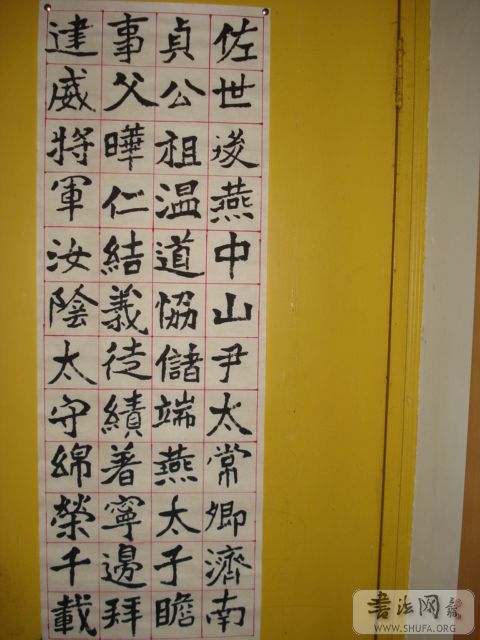 佐世後燕中山尹太常卿濟南
貞公祖温道協儲端燕太子瞻
事父曄仁結義徒績著寧邊拜
建威將軍汝陰太守綿榮千載
書法网
WWW.SHUFA.ORG